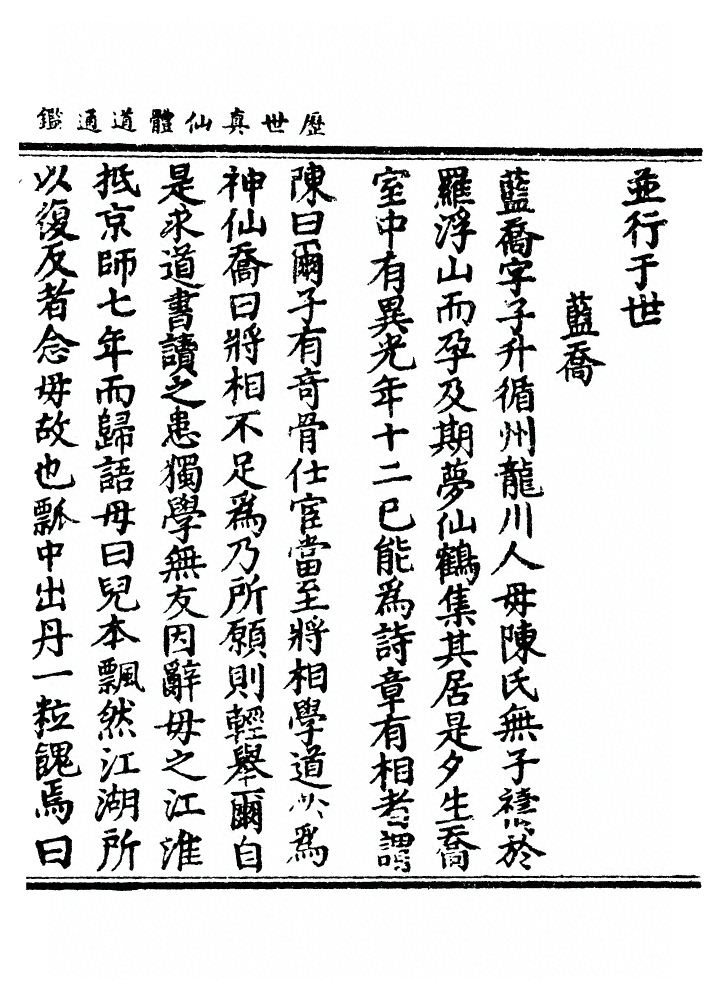 歷世真仙體道通鑑
並行于世
藍喬
藍喬字子升循州龍川人毋陳氏無子禱於
羅浮山而孕及期夢仙鶴集其居是夕生喬
室中有異光年十二已能為詩章有相者謂
陳曰爾子有奇骨仕宦當至將相學道必為
神仙喬曰將相不足為乃所願則輕舉爾自
是求道書讀之患獨學無友因辭毋之江淮
抵京師七年而歸語毋曰兒本飄然江湖所
以復反者念毋故也瓢中出丹一粒餽焉曰